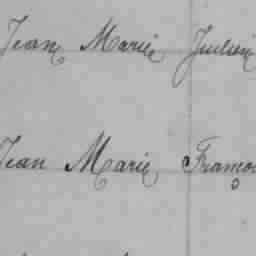 Jean Marie Julien
Jean Marie Françoi